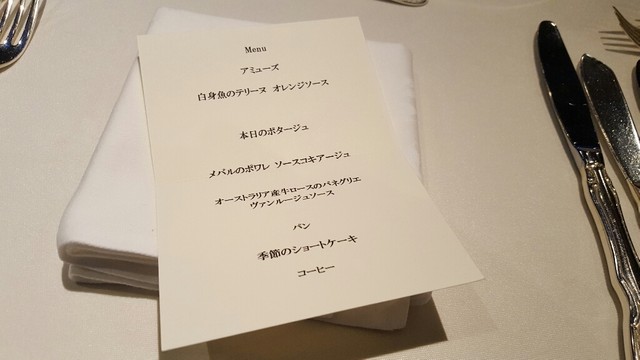 Menu
アミューズ
白身魚のテリーヌ オレンジソース
本日のポタージュ
メバルのポワレ ソースコキアージュ
オーストラリア産牛ロースのパネグリエ
ヴァンルージュソース
パン
季節のショートケーキ
コーヒー